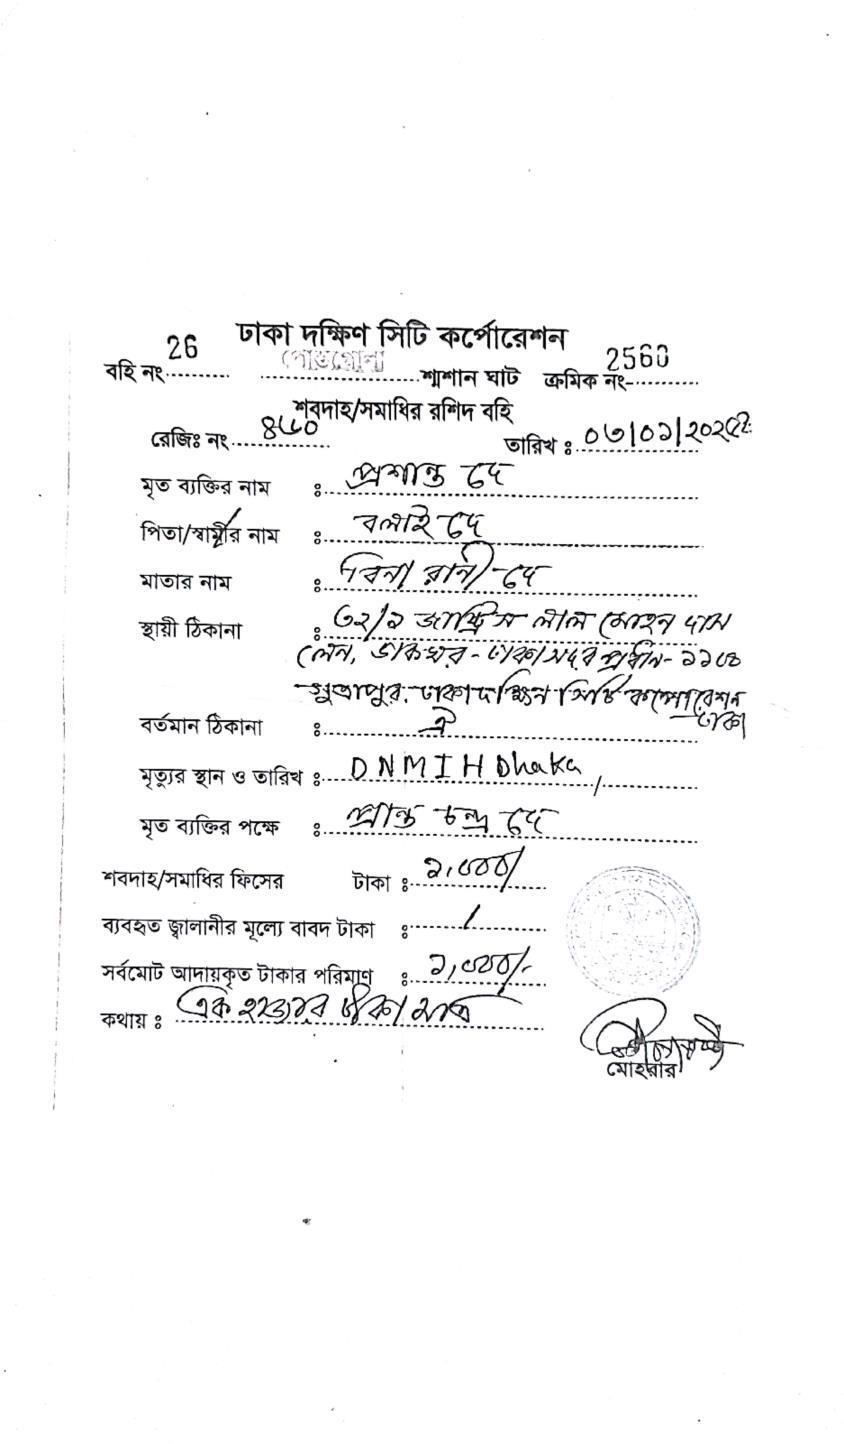 ঢাকা দক্ষিণ সিটি কর্পোরেশন
বহি নং 26 পোস্তগোলা শ্মশান ঘাট ক্রমিক নং- 2560
শবদাহ/সমাধির রশিদ বহি
রেজিঃ নং তারিখ :
মৃত ব্যক্তির নাম : প্রশান্ত দে
পিতা/স্বামীর নাম : বলাই দে
মাতার নাম : বিনা রানী দে
স্থায়ী ঠিকানা : ৩২/১ জাস্টিস লাল মোহন দাস
লেন, ডাকঘর - ঢাকা সদর প্রধান - ১১০০
সুত্রাপুর, ঢাকা দক্ষিন সিটি কর্পোরেশন
ঢাকা
বর্তমান ঠিকানা : ঐ
মৃত্যুর স্থান ও তারিখ : DNMIH Dhaka
মৃত ব্যক্তির পক্ষে : চন্দ্র দে
শবদাহ/সমাধির ফিসের টাকা : ১,০০০/
ব্যবহৃত জ্বালানীর মূল্যে বাবদ টাকা : /
সর্বমোট আদায়কৃত টাকার পরিমাণ : ১,০০০/-
কথায় : এক হাজার টাকা মাত্র
মোহরার